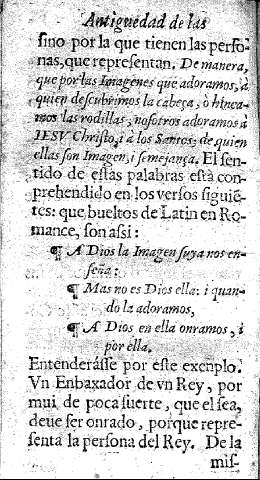 Antiguedad de las
sino por la que tienen las perso-
nas, que representan. De manera,
que por las Imagenes que adoramos, à
quien descubrimos la cabeça, ò hinca-
mos las rodillas, nosotros adoramos à
IESV Christo, i à los Santos; de quien
ellas son Imagen, i semejança. El sen-
tido de estas palabras està con-
prehendido en los versos siguiẽ-
tes: que bueltos de Latin en Ro-
mance, son assi:
¶ A Dios la Imagen suya nos en-
seña:
¶ Mas no es Dios ella: i quan-
do la adoramos,
¶ A Dios en ella onramos, i
por ella.
Entenderásse por este exenplo.
Vn Enbaxador de vn Rey, por
mui de poca suerte, que el sea,
deue ser onrado, porque repre-
senta la persona del Rey. De la
mis-